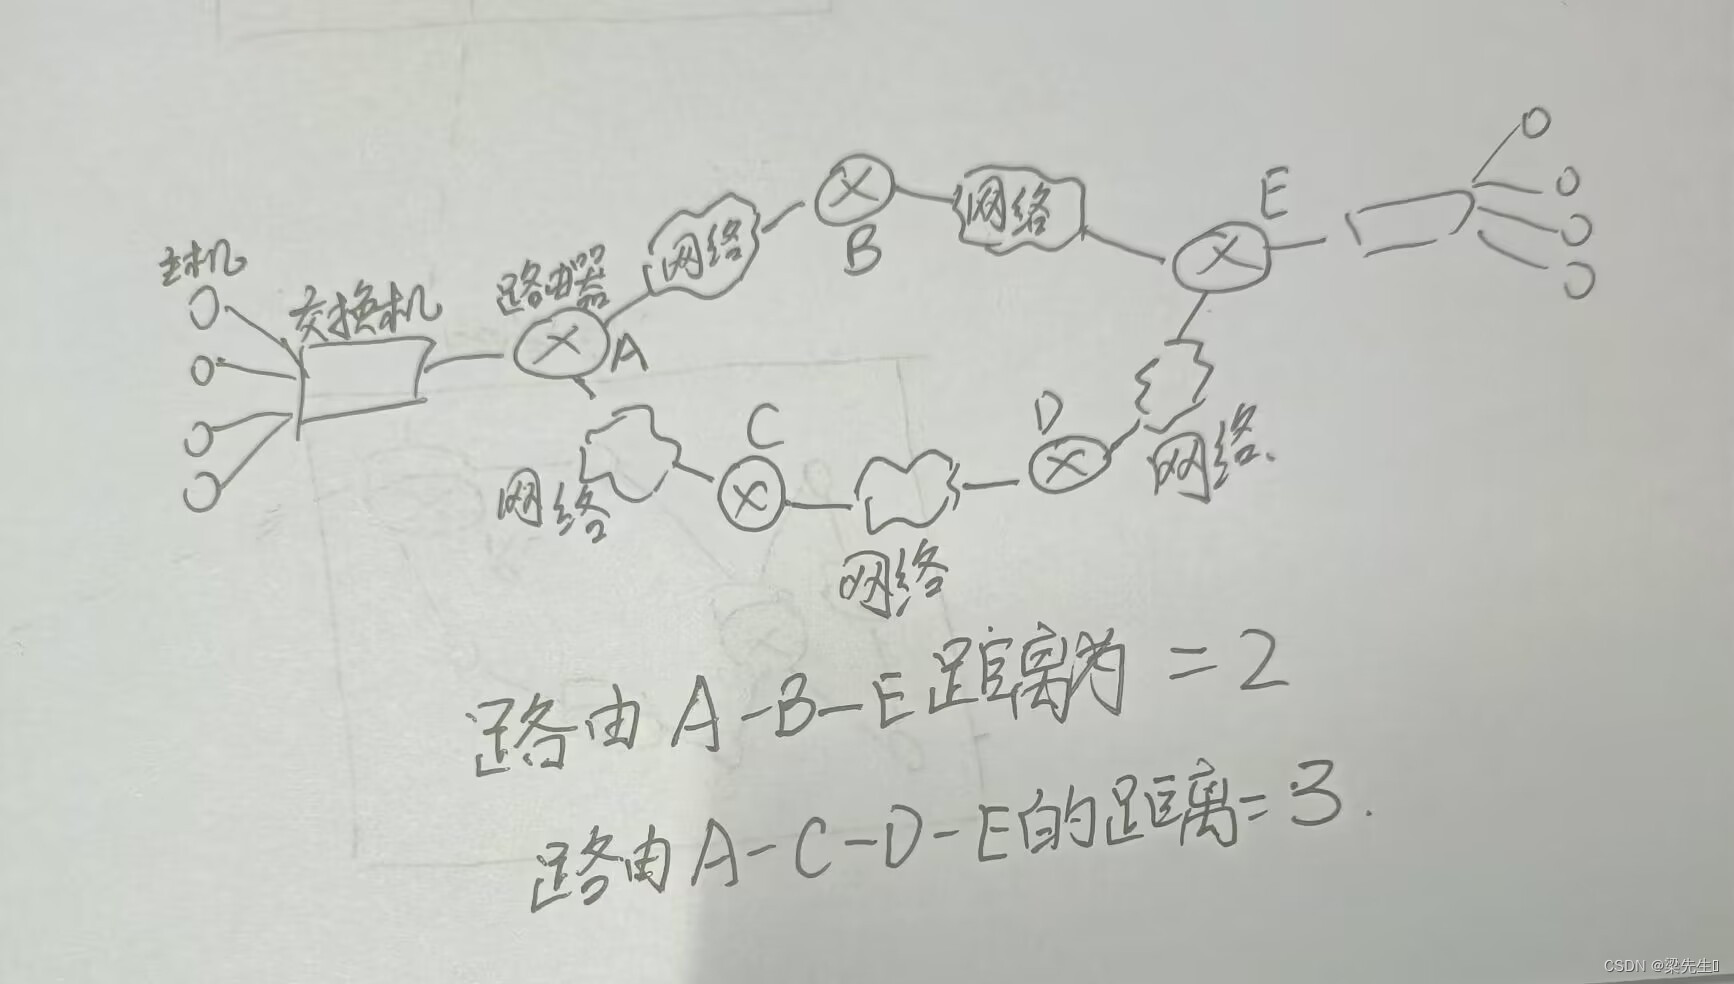 主机
交换机
路由器
A
网络
B
网络
E
网络
C
网络
D
网络.
路由A-B-E距离为=2
路由A-C-D-E的距离=3.
CSDN @梁先生